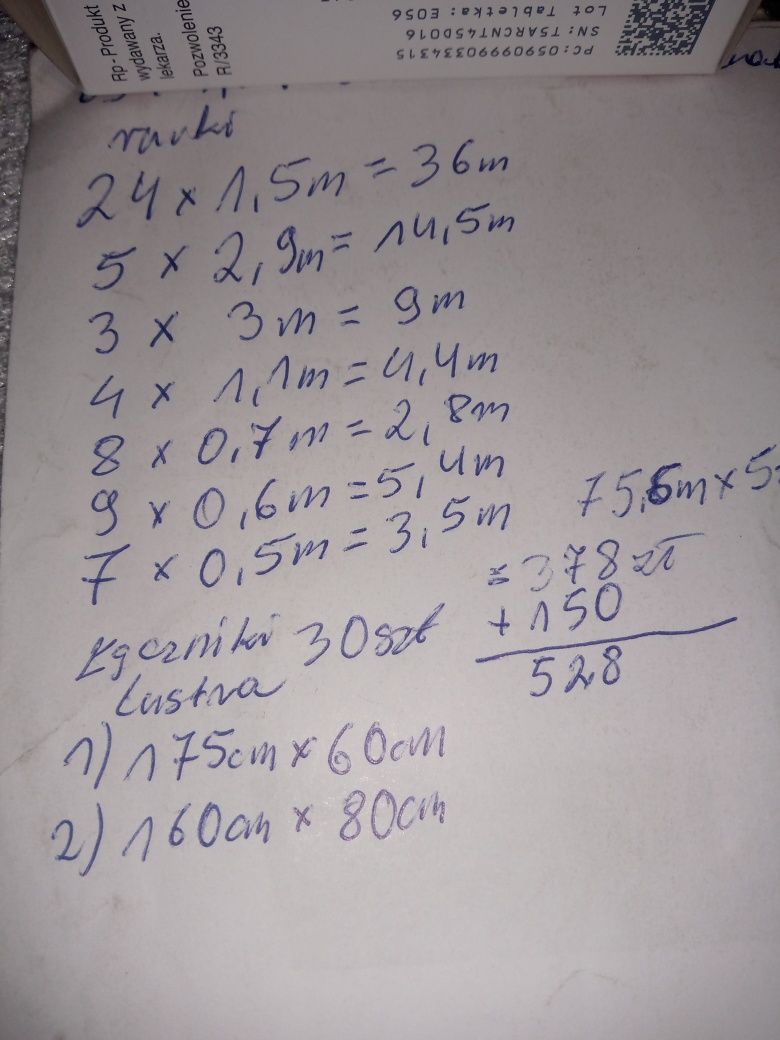 Rp- Produkt
wydawany z
lekarza.
Pozwolenie
R/3343
PC: 05909990334315
SN: T5ARCNT45D016
Lot Tabletka: E056
rurki
24 x 1,5m = 36m
5 x 2,9m = 14,5m
3 x 3m = 9m
4 x 1,1m = 4,4m
8 x 0,7m = 2,8m
9 x 0,6m = 5,4m
7 x 0,5m = 3,5m
75,6m x 5
= 378 zł
+ 150
528
Łączniki 30 szt
Lustra
1) 175cm x 60cm
2) 160cm x 80cm